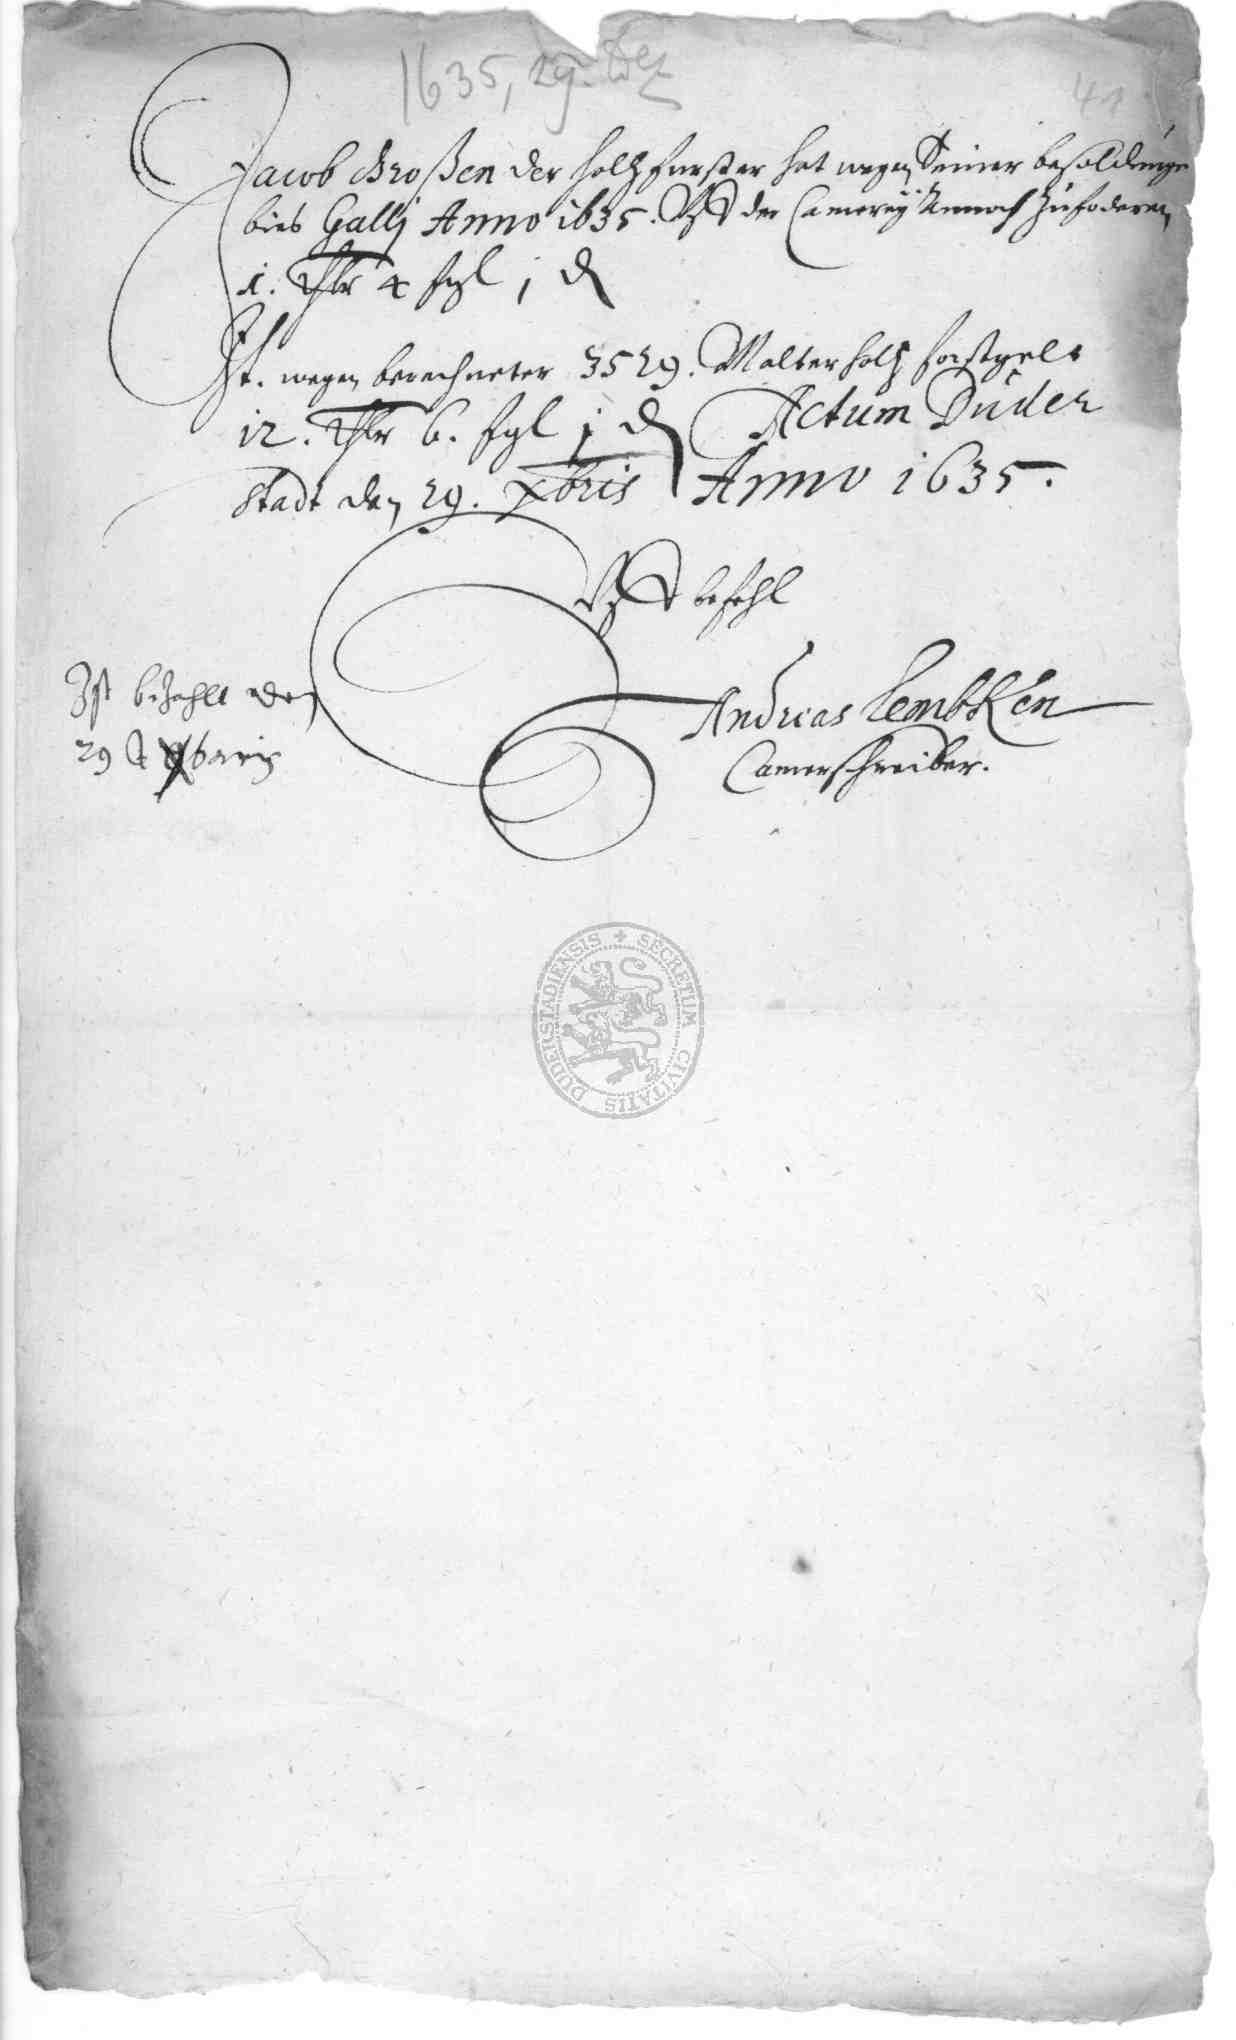 1635, 29. Dez
41
Jacob Großen der holtzfurster hat wegen Seiner besoldunge
bies Gallj Anno 1635. Vff der Camerey Annoch zufoderen
1. Thlr 4 fgl j d
It. wegen berechneter 3529. Malter holtz forstgelt
12. Thlr 6. fgl j d Actum Duder
stadt den 29. Xbris Anno 1635.
Vff befehl
Ist bezahlt den
Andreas Lembken
29
Camerschreiber.
DUDERSTADIENSIS + SECRETUM CIVITATIS